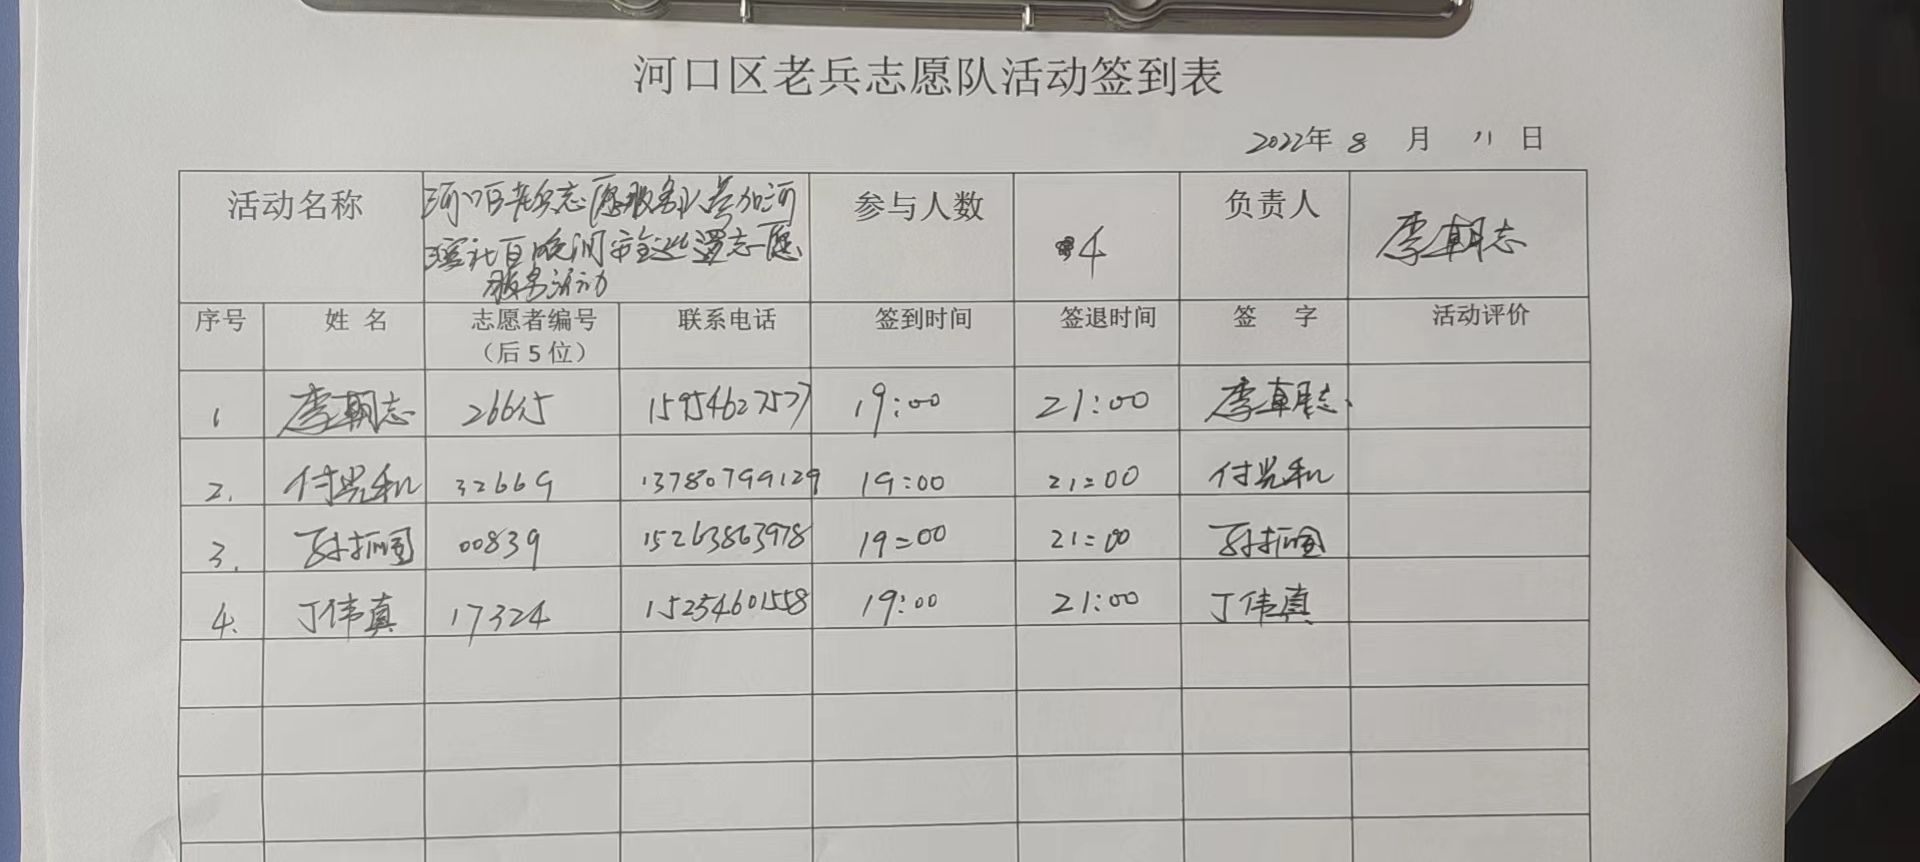 河口区老兵志愿队活动签到表
2022年 8 月 11 日
活动名称 河口区老兵志愿服务队参加河 参与人数 4 负责人 李朝志
滨社区晚间安全巡逻志愿
服务活动
序号 姓 名 志愿者编号 联系电话 签到时间 签退时间 签 字 活动评价
（后5位）
1 李朝志 26615 19:00 21:00 李朝志
2. 32669 13780799129 19:00 21:00
3. 00839 15263863978 19:00 21:00
4. 丁伟真 17324 15254601558 19:00 21:00 丁伟真